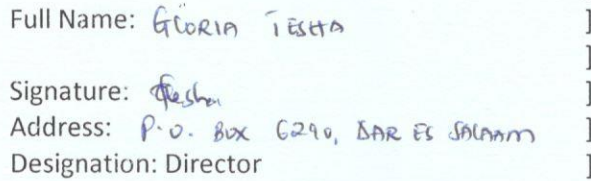 Full Name: GLORIA TESHA ]
]
Signature: Tesha ]
Address: P.O. BOX 6290, DAR ES SALAAM ]
Designation: Director ]